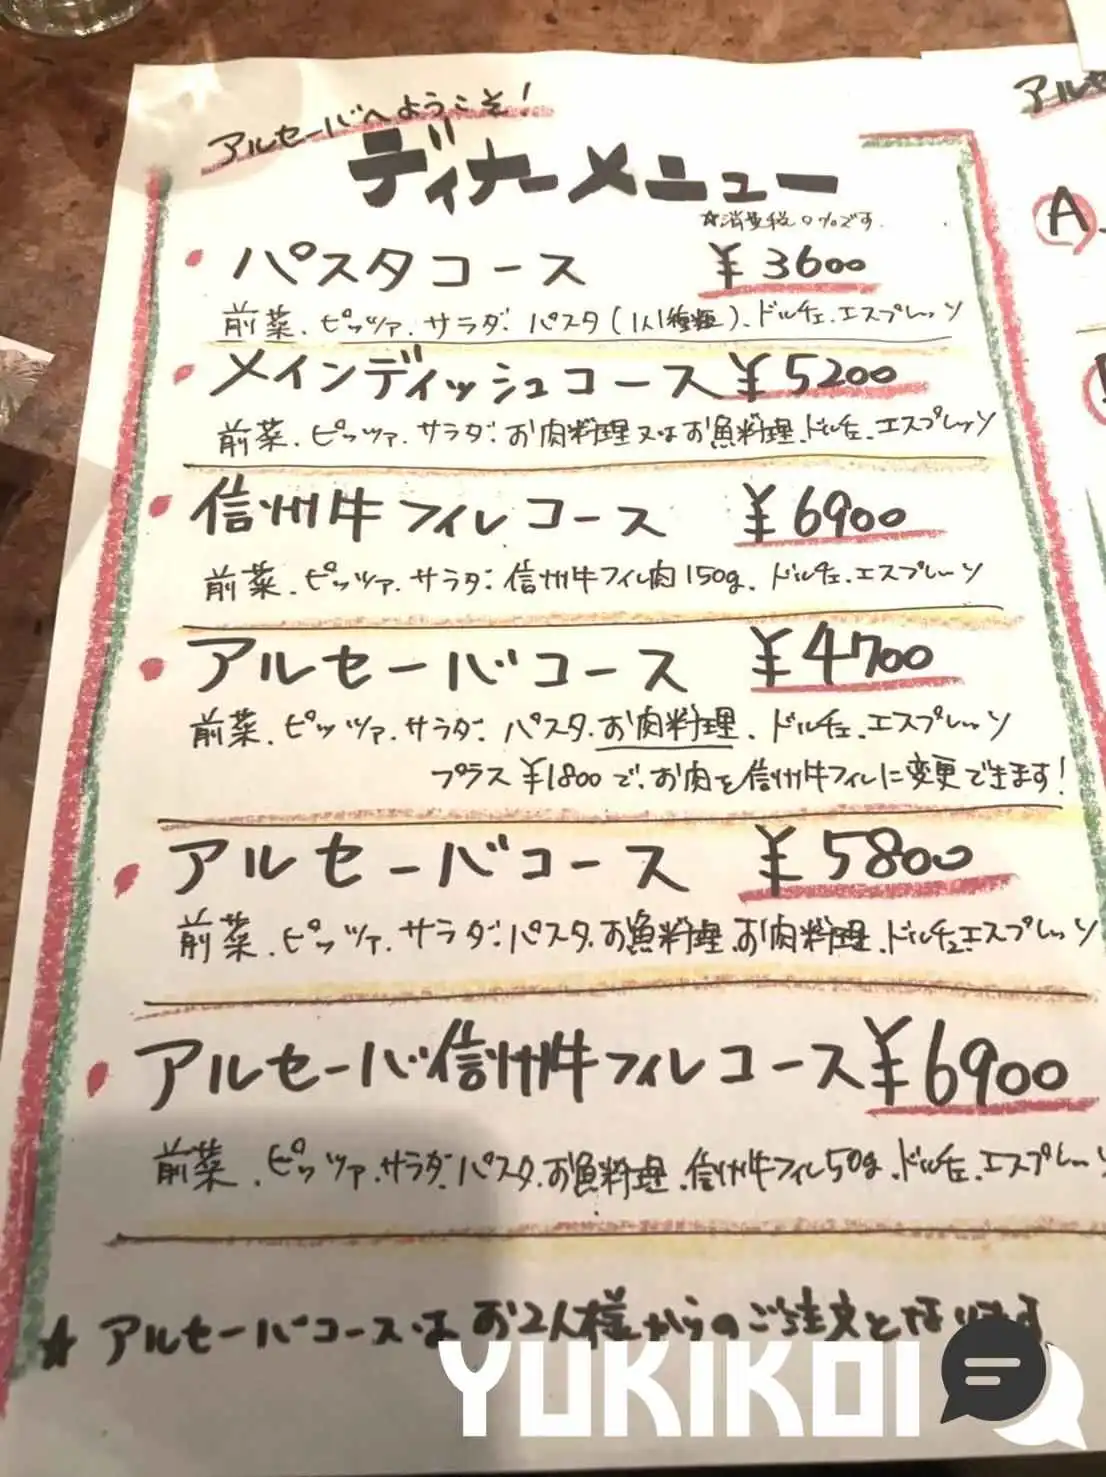 アルセーバへようこそ!
ディナーメニュー
☆消費税0%です.
・パスタコース ¥3600
前菜.ピッツァ.サラダ.パスタ(1人1種類).ドルチェ.エスプレッソ
・メインディッシュコース ¥5200
前菜.ピッツァ.サラダ.お肉料理又はお魚料理.ドルチェ.エスプレッソ
・信州牛フィレコース ¥6900
前菜.ピッツァ.サラダ.信州牛フィレ肉150g.ドルチェ.エスプレッソ
・アルセーバコース ¥4700
前菜.ピッツァ.サラダ.パスタ.お肉料理.ドルチェ.エスプレッソ
プラス¥1800で、お肉を信州牛フィレに変更できます!
・アルセーバコース ¥5800
前菜.ピッツァ.サラダ.パスタ.お魚料理.お肉料理.ドルチェ.エスプレッソ
・アルセーバ信州牛フィレコース ¥6900
前菜.ピッツァ.サラダ.パスタ.お魚料理.信州牛フィレ50g.ドルチェ.エスプレッ
☆アルセーバコースはお2人様からのご注文となります
アルセ
A
YUKIKOI